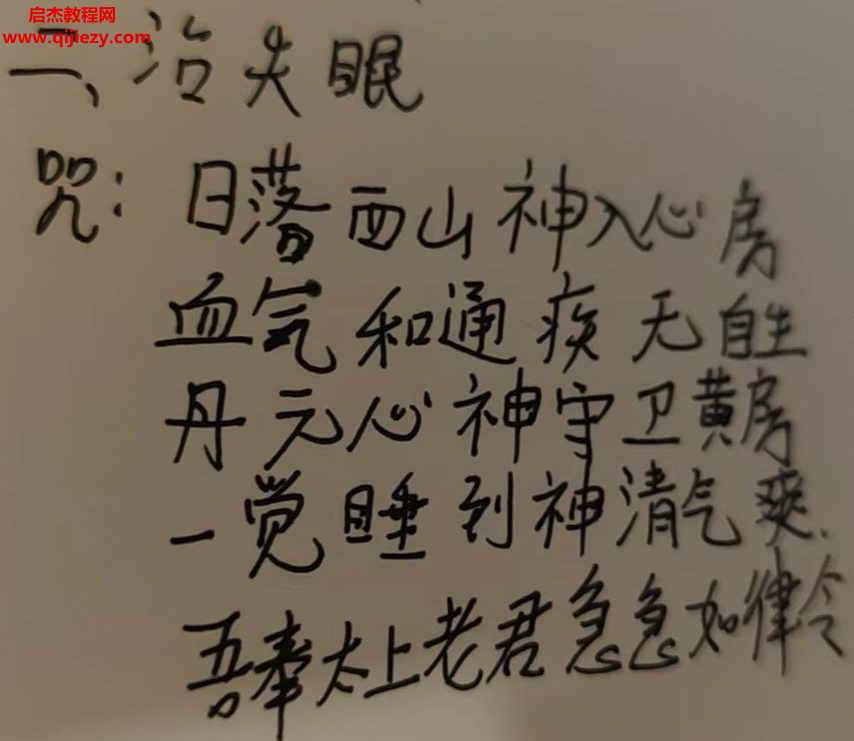 启杰教程网
www.qijiezy.com
二、治失眠
咒：日落西山神入心房
血气和通疾无自生
丹元心神守卫黄房
一觉睡到神清气爽.
吾奉太上老君急急如律令